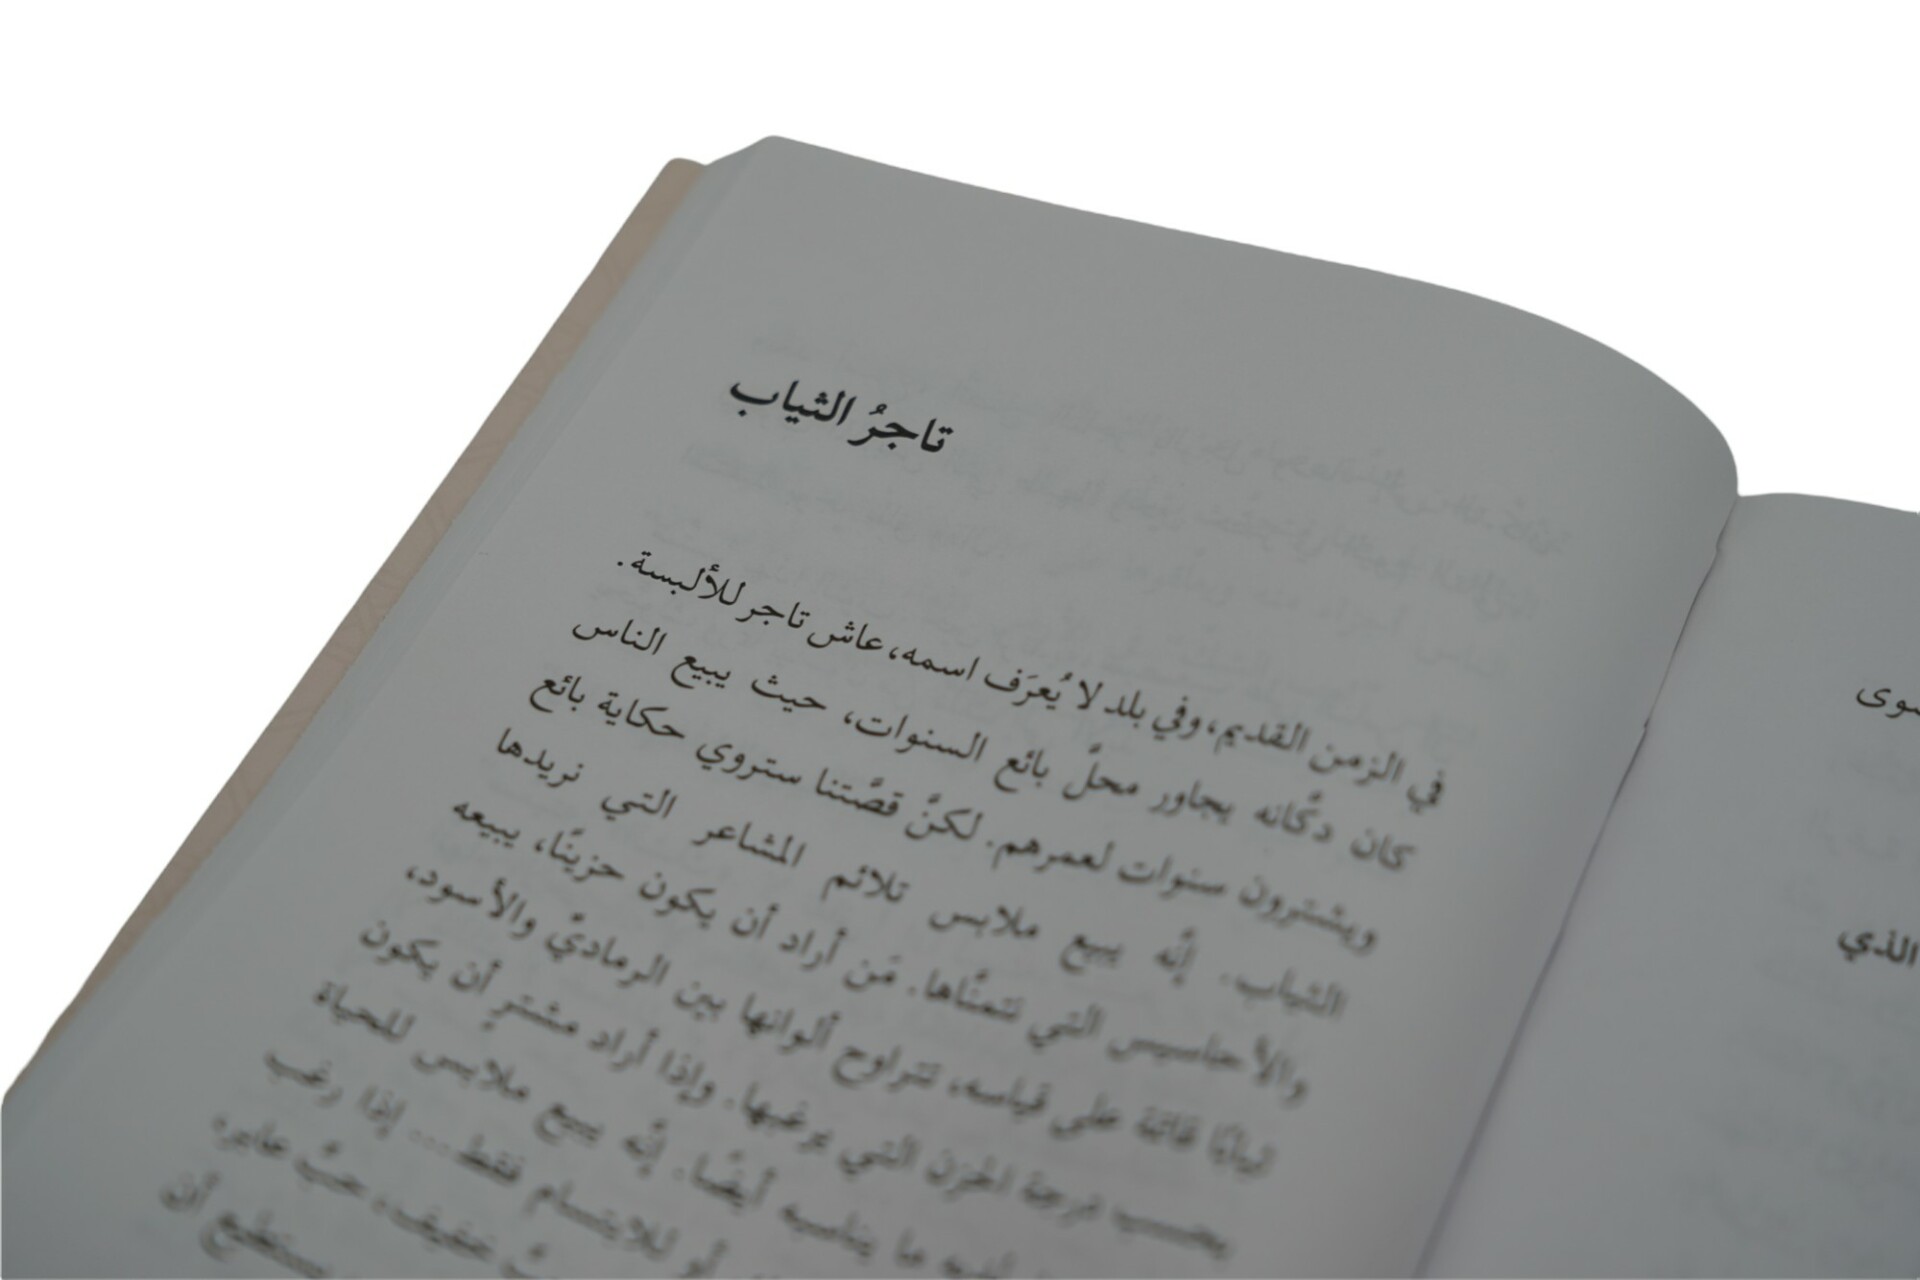 سوى
الذي
تاجرُ الثياب
في الزمن القديم، وفي بلد لا يُعرَف اسمه، عاش تاجر للألبسة.
كان دكَّانه يجاور محلَّ بائع السنوات، حيث يبيع الناس
ويشترون سنوات لعمرهم. لكنَّ قصَّتنا ستروي حكاية بائع
الثياب. إنَّه يبيع ملابس تلائم المشاعر التي نريدها
والأحاسيس التي نتمنَّاها. مَن أراد أن يكون حزينًا، يبيعه
ثيابًا قاتمة على قياسه، تتراوح ألوانها بين الرماديِّ والأسود،
بحسب درجة الحزن التي يرغبها. وإذا أراد مشترٍ أن يكون
ما يناسبه أيضًا. إنَّه يبيع ملابس للحياة
أو للابتسام فقط... إذا رغب
خفيف، حبٍّ عابر،
يستطيع أن